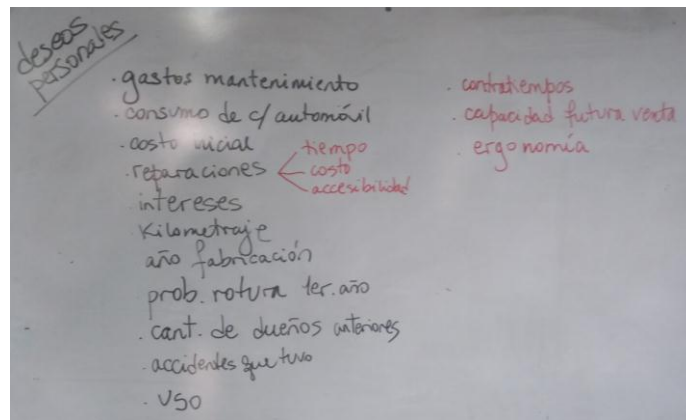 deseos
personales
. gastos mantenimiento
. consumo de c/ automóvil
. costo inicial
. reparaciones
tiempo
costo
accesibilidad
intereses
Kilometraje
año fabricación
prob. rotura 1er. año
. cant. de dueños anteriores
. accidentes que tuvo
. USO
. contratiempos
. capacidad futura venta
. ergonomía